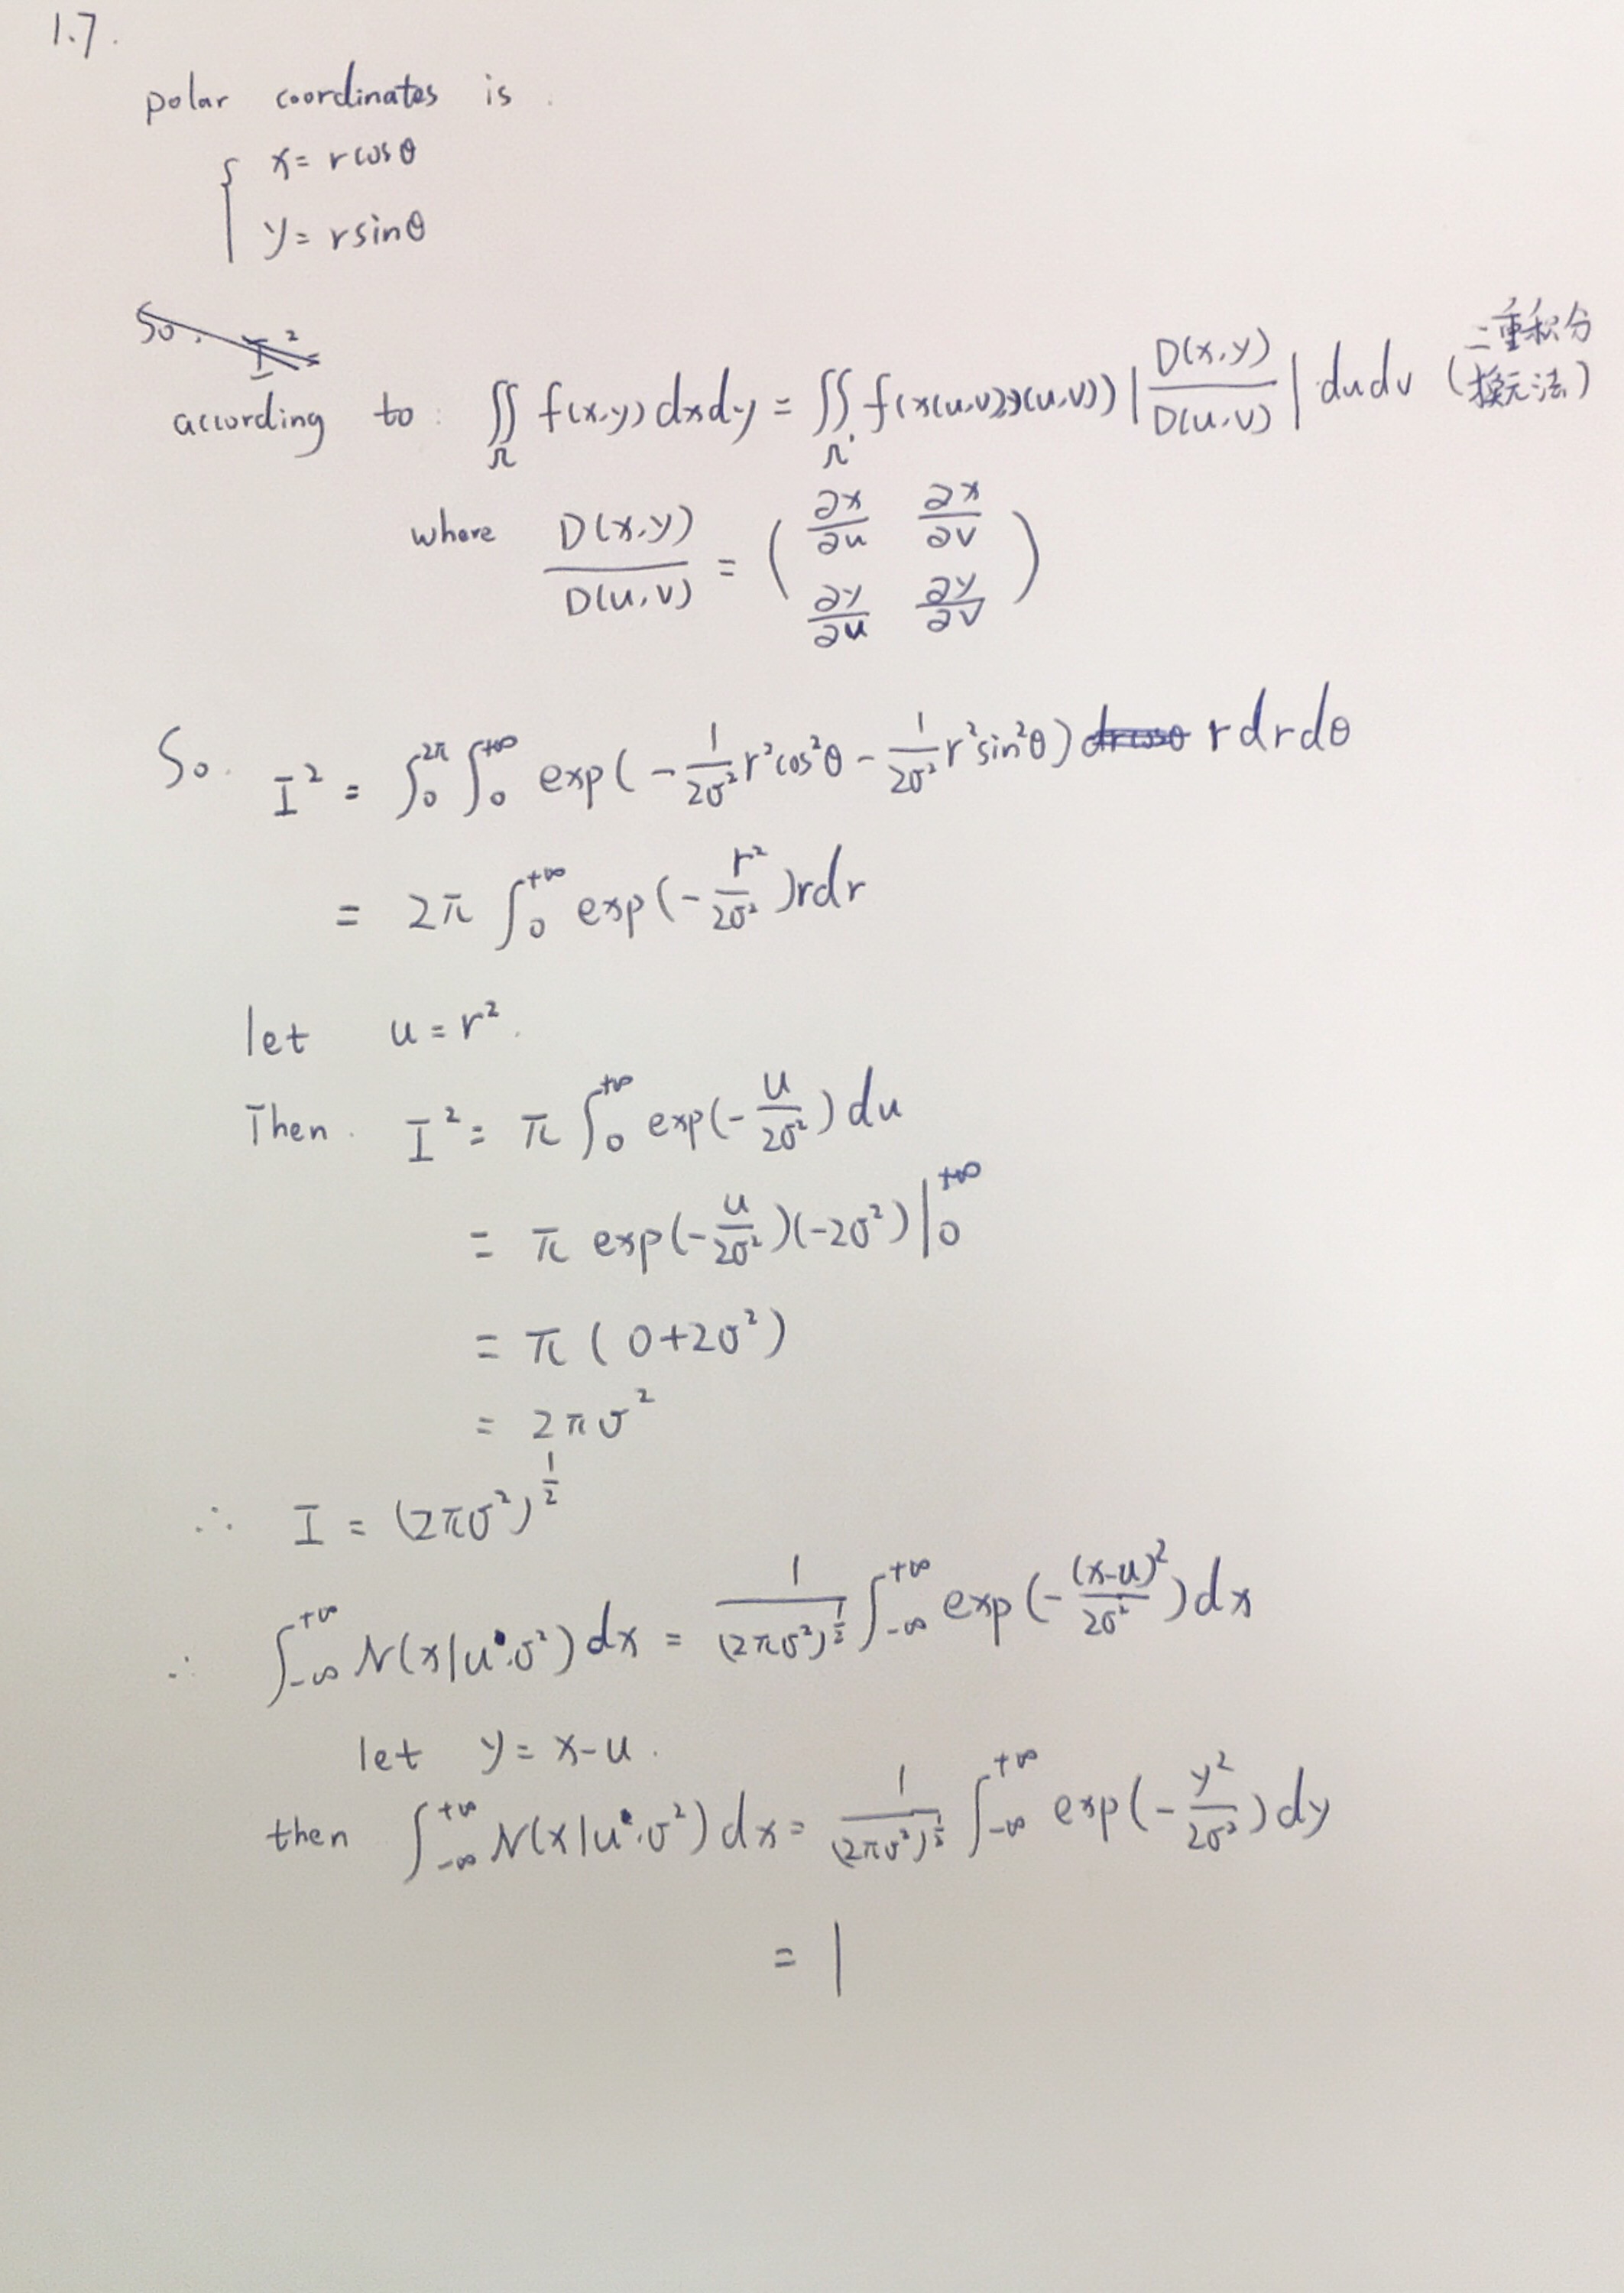 1.7.
polar coordinates is.
{ x = r cosθ
y = r sinθ
So. I² =
according to: ∬_Ω f(x,y) dxdy = ∬_Ω' f(x(u,v), y(u,v)) | D(x,y) / D(u,v) | dudv (二重积分换元法)
where D(x,y) / D(u,v) = ( ∂x/∂u ∂x/∂v
∂y/∂u ∂y/∂v )
So. I² = ∫₀^{2π} ∫₀^{+∞} exp( - 1/2σ² r²cos²θ - 1/2σ² r²sin²θ) drcosθ r dr dθ
= 2π ∫₀^{+∞} exp(- r²/2σ² ) r dr
let u = r².
Then. I² = π ∫₀^{+∞} exp(- u/2σ² ) du
= π exp(- u/2σ² )(-2σ²) |₀^{+∞}
= π ( 0+2σ²)
= 2πσ²
∴ I = (2πσ²)^{1/2}
∴ ∫_{-∞}^{+∞} N(x|u,σ²) dx = 1/(2πσ²)^{1/2} ∫_{-∞}^{+∞} exp(- (x-u)²/2σ² ) dx
let y = x-u.
then ∫_{-∞}^{+∞} N(x|u,σ²) dx = 1/(2πσ²)^{1/2} ∫_{-∞}^{+∞} exp(- y²/2σ² ) dy
= 1